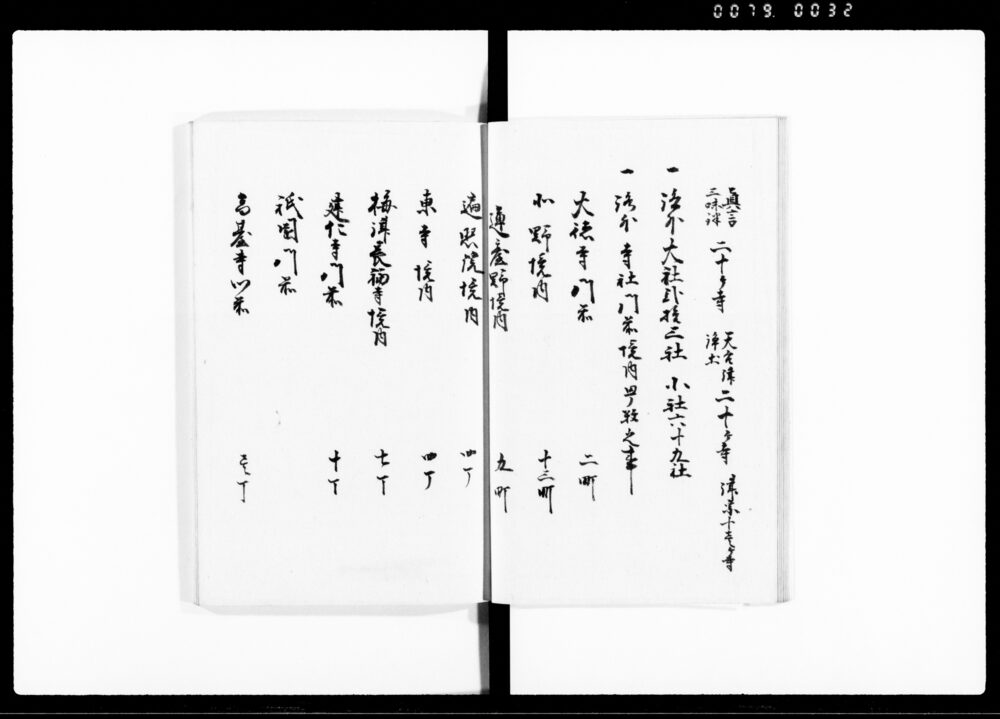 0079. 0032
真言三味律 二十ヶ寺 天台律浄土 二十ヶ寺 律宗十壱ヶ寺
一 洛外大社弐拾三社 小社六十九社
一 洛外寺社門前境内町数之事
大徳寺門前 二町
北野境内 十三町
蓮台野境内 九町
遍照院境内 四丁
東寺境内 四丁
梅津長福寺境内 七丁
建仁寺門前 十丁
祇園門前
高台寺門前 壱丁